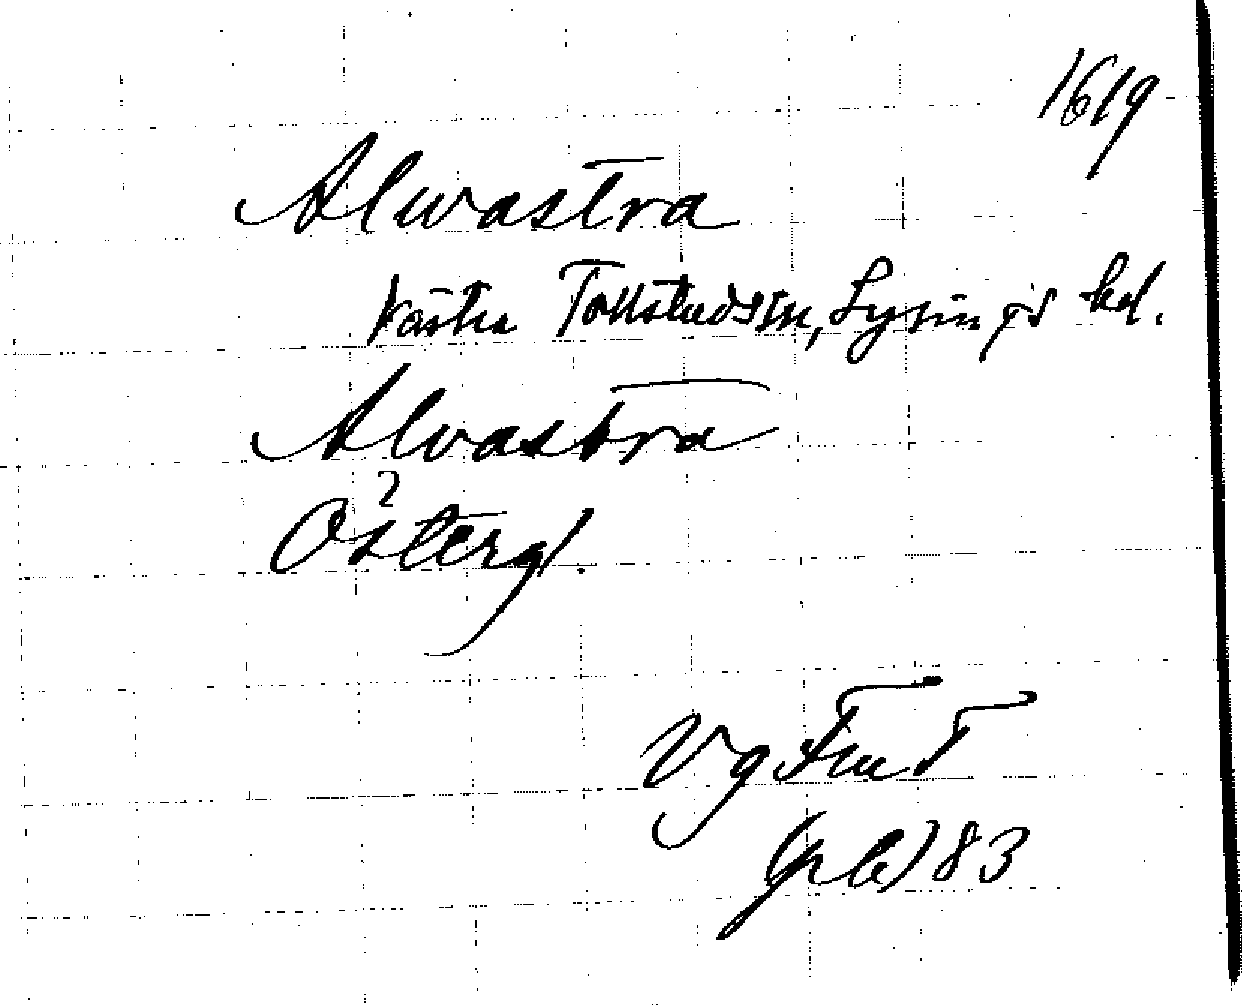 1619
Alwastra
Västra Tollstads sn, Lysings hd.
Alvastra
Österg/.
Vg Fru T
(p b) 83